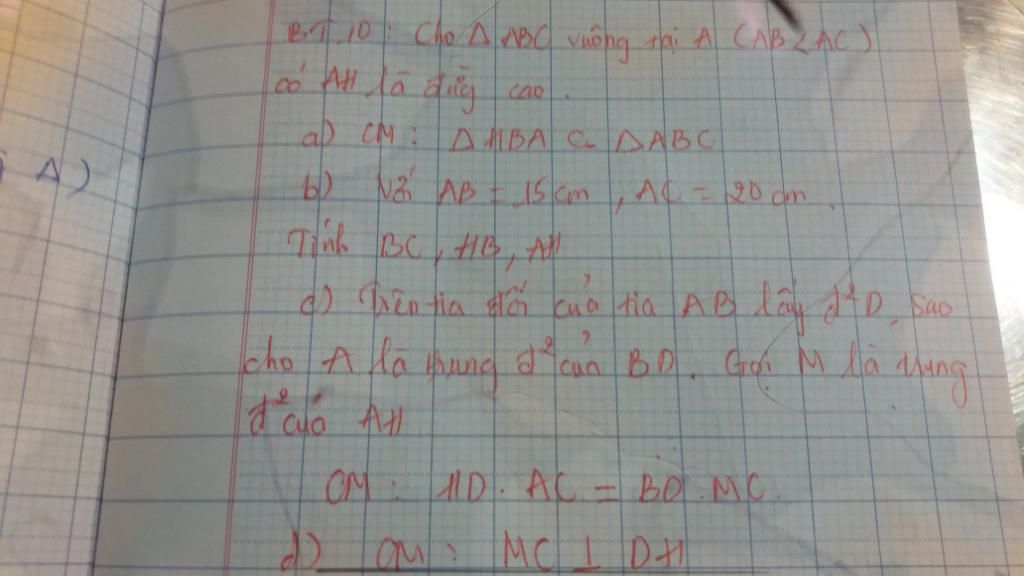 BT 10: Cho Δ ABC vuông tại A (AB < AC)
có AH là đg̀ cao.
A)
a) CM: Δ HBA ∽ Δ ABC
b) Với AB = 15 cm, AC = 20 cm.
Tính BC, HB, AH
c) Trên tia đối của tia AB lấy đ² D. sao
cho A là trung đ² của BD. Gọi M là trung
đ² của AH
CM: HD . AC = BD . MC
d) CM: MC ⊥ DH